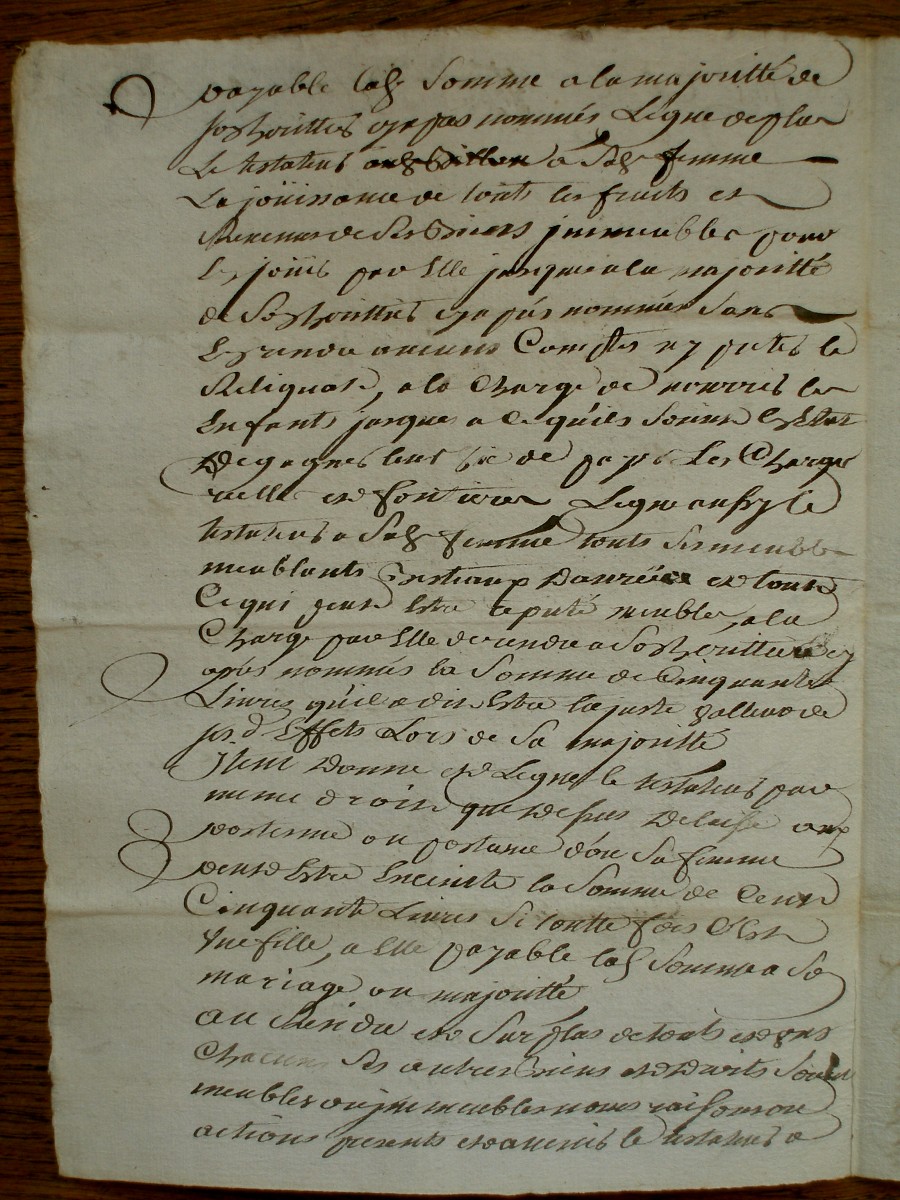 payable lad Somme a la majoritté de
Son heritier cy apres nommés Legue de plus
Le testateur a Sad femme
La joüissance de touts les fruits et
Revenus de Ses Biens immeubles pour
En joüir par Elle jusques a la majoritté
de Son heritier cy apres nommés Sans
En rendre aucuns Comptes ny prêter le
Reliquat, a la Charge de nourrir les
Enfants jusques a ce qu'ils Soient En Etat
De gagner leur vie de payer Les Charges
et fontieres Legue aussy le
testateur a Sad femme touts Ses meubles
meublants Bestiaux Danrées et tout
Ce qui peut Estre reputé meubles, a la
Charge par Elle de rendre a Son heritier cy
apres nommés la Somme de Cinquante
Livres qu'il a dit Estre la juste valleur de
Sesd Effets Lors de Sa majoritté
Jtem Donne et Legue le testateur par
meme droit que Dessus Delaisse aux
posteume ou postume don Sa femme
peut Estre Enceinte la Somme de Cent
Cinquante Livres Si toutte fois C'est
Une fille, a Elle payable lad Somme a So
mariage ou majoritté
Au Residu et Surplus de touts et uns
Chacuns Ses autres Biens et droits Soient
meubles ou immeubles noms raisons ou
actions presents et avenir le testateur a